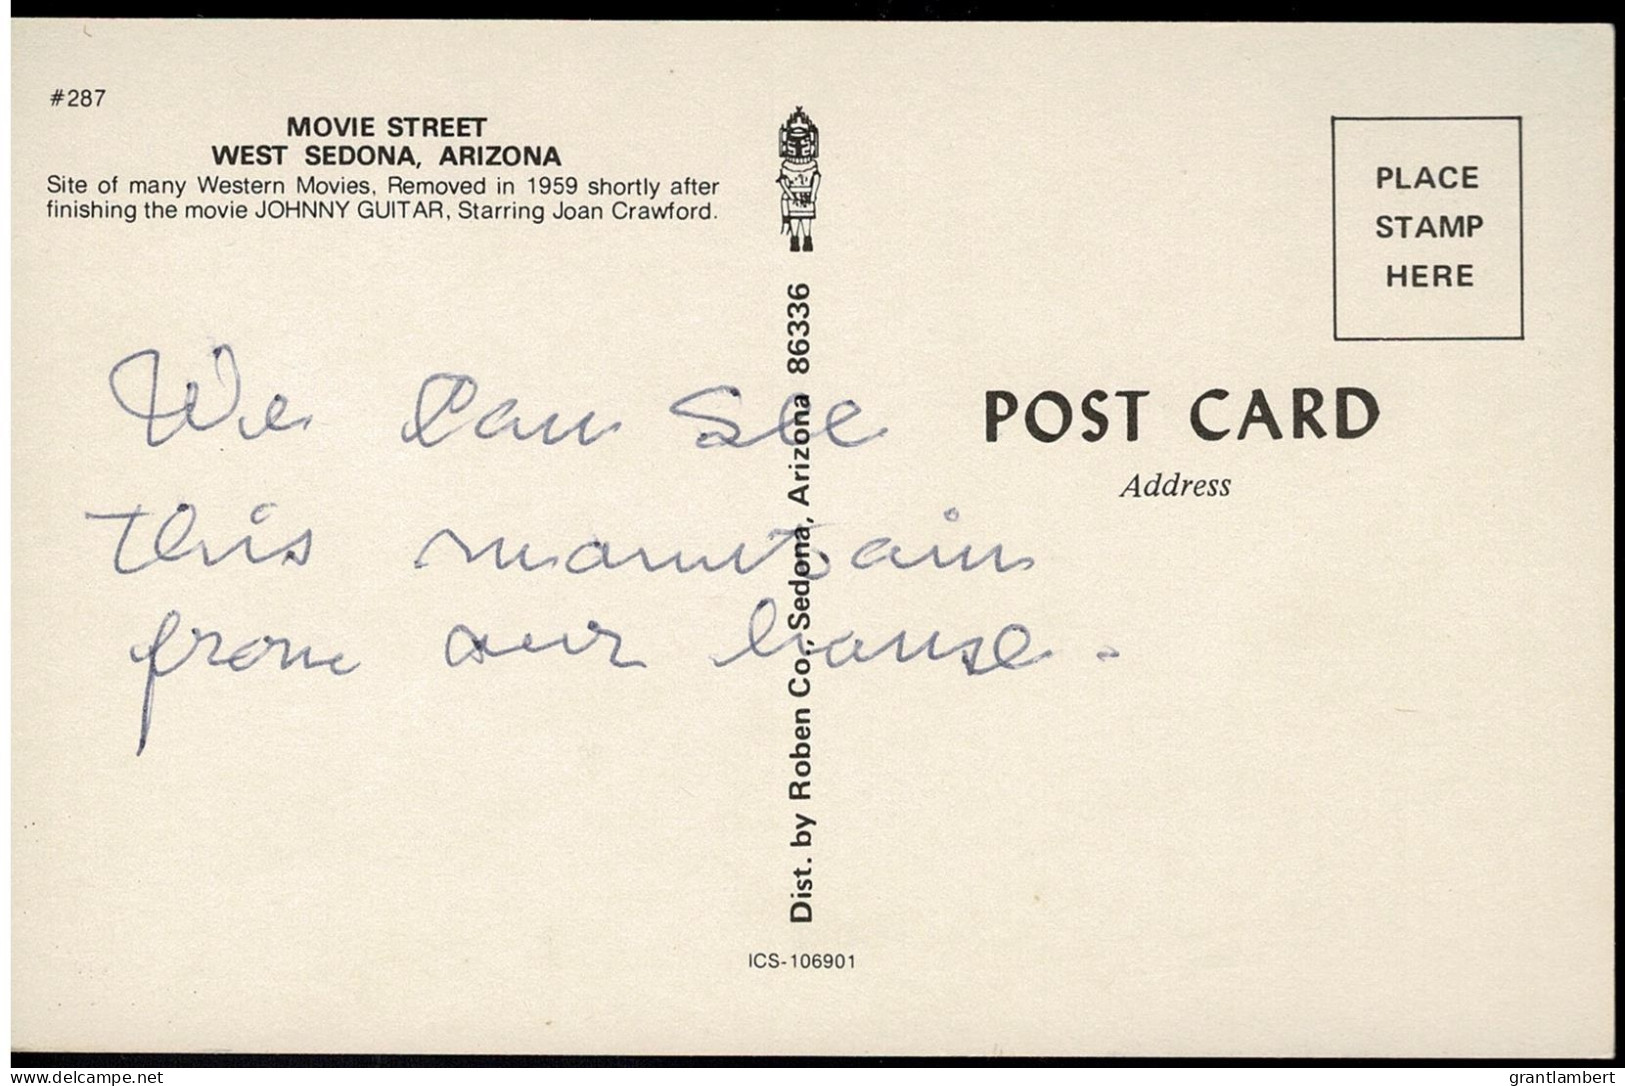 #287
MOVIE STREET
WEST SEDONA, ARIZONA
Site of many Western Movies, Removed in 1959 shortly after
finishing the movie JOHNNY GUITAR, Starring Joan Crawford.
We can see
this mountain
from our house.
Dist. by Roben Co., Sedona, Arizona 86336
ICS-106901
PLACE
STAMP
HERE
POST CARD
Address
delcampe.net
grantlambert